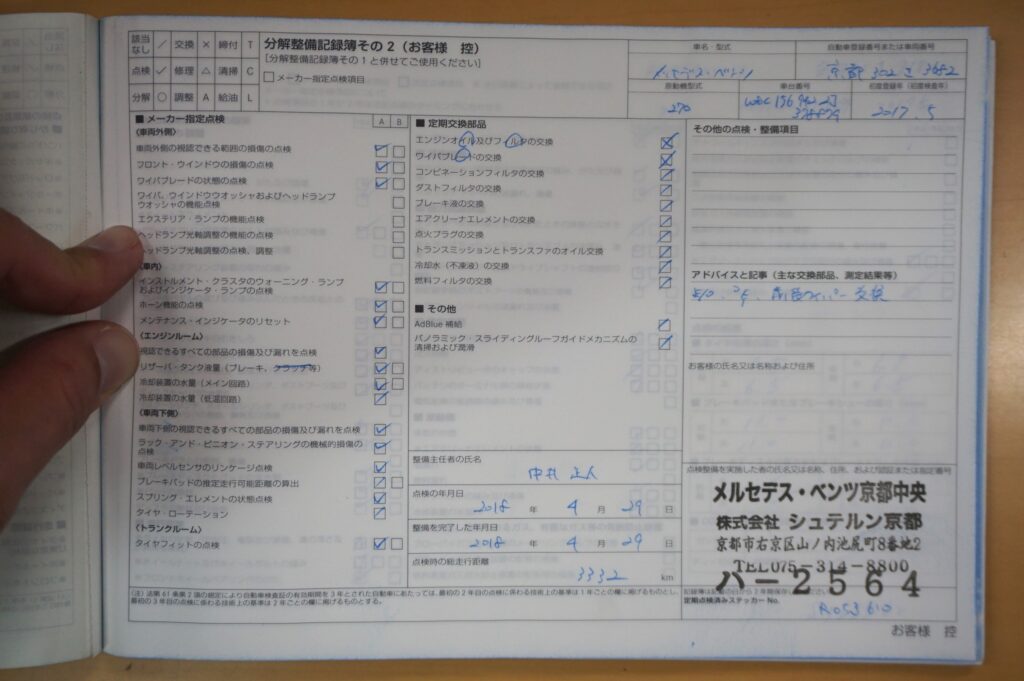 該当なし ／ 交換 × 締付 T
点検 ✓ 修理 △ 清掃 C
分解 ○ 調整 A 給油 L
分解整備記録簿その2（お客様 控）
[分解整備記録簿その1と併せてご使用ください]
□ メーカー指定点検項目
車名・型式
メルセデス・ベンツ
自動車登録番号または車両番号
京都 302 さ 3682
原動機型式
270
車台番号
初度登録年（初度検査年）
2017. 5
■ メーカー指定点検
A B
〈車両外側〉
車両外側の視認できる範囲の損傷の点検
フロント・ウインドウの損傷の点検
ワイパブレードの状態の点検
ワイパ、ウインドウウオッシャおよびヘッドランプ
ウオッシャの機能点検
エクステリア・ランプの機能点検
ヘッドランプ光軸調整の機能点検
ヘッドランプ光軸調整の点検、調整
〈車内〉
インストルメント・クラスタのウォーニング・ランプ
およびインジケータ・ランプの点検
ホーン機能の点検
メンテナンス・インジケータのリセット
〈エンジンルーム〉
視認できるすべての部品の損傷及び漏れを点検
リザーバ・タンク液量（ブレーキ、クラッチ等）
冷却装置の水量（メイン回路）
冷却装置の水量（低温回路）
〈車両下側〉
車両下側の視認できるすべての部品の損傷及び漏れを点検
ラック・アンド・ピニオン・ステアリングの機械的損傷の
点検
車両レベルセンサのリンケージ点検
ブレーキパッドの推定走行可能距離の算出
スプリング・エレメントの状態点検
タイヤ・ローテーション
〈トランクルーム〉
タイヤフィットの点検
■ 定期交換部品
エンジンオイル及びフィルタの交換
ワイパブレードの交換
コンビネーションフィルタの交換
ダストフィルタの交換
ブレーキ液の交換
エアクリーナエレメントの交換
点火プラグの交換
トランスミッションとトランスファのオイル交換
冷却水（不凍液）の交換
燃料フィルタの交換
■ その他
AdBlue 補給
パノラミック・スライディングルーフガイドメカニズムの
清掃および潤滑
整備主任者の氏名
点検の年月日
2018 年 4 月 29 日
整備を完了した年月日
2018 年 4 月 29 日
点検時の総走行距離
3332 km
その他の点検・整備項目
アドバイスと記事（主な交換部品、測定結果等）
交換
お客様の氏名又は名称および住所
点検整備を実施した者の氏名又は名称、住所、および認証または指定番号
メルセデス・ベンツ京都中央
株式会社 シュテルン京都
京都市右京区山ノ内池尻町8番地2
TEL075-314-8800
ハー2564
定期点検済みステッカー No.
R053610
（注）法第61条第2項の規定により自動車検査証の有効期間を3年とされた自動車にあたっては、最初の2年目の点検に係わる技術上の基準は1年ごとの欄に掲げるものとし、
最初の3年目の点検に係わる技術上の基準は2年ごとの欄に掲げるものとする。
お客様 控